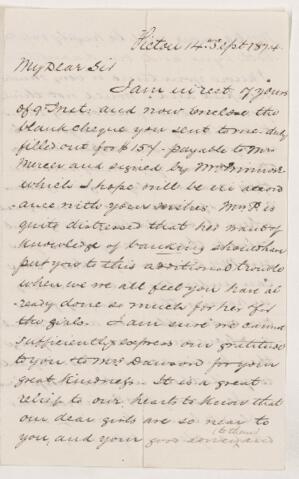 Pictou 14th Sept 1874.
My Dear Sir
I am in rect. of yours
of 9 Inst. and now enclose the
blank cheque you sent to me duly
filled out for $154 - payable to Mrs
Mercer and signed by Mrs
which I hope will be in accord
ance with your wishes. Mrs P. is
quite distressed that her want of
knowledge of banking should have
put you to this additional trouble
when we all feel you have al
ready done so much for her & for
the girls. I am sure we cannot
sufficiently express our gratitude
to you & to Mrs Dawson for your
great kindness. It is a great
relief to our hearts to know that
our dear girls are so near to
(to them)
you, and your good